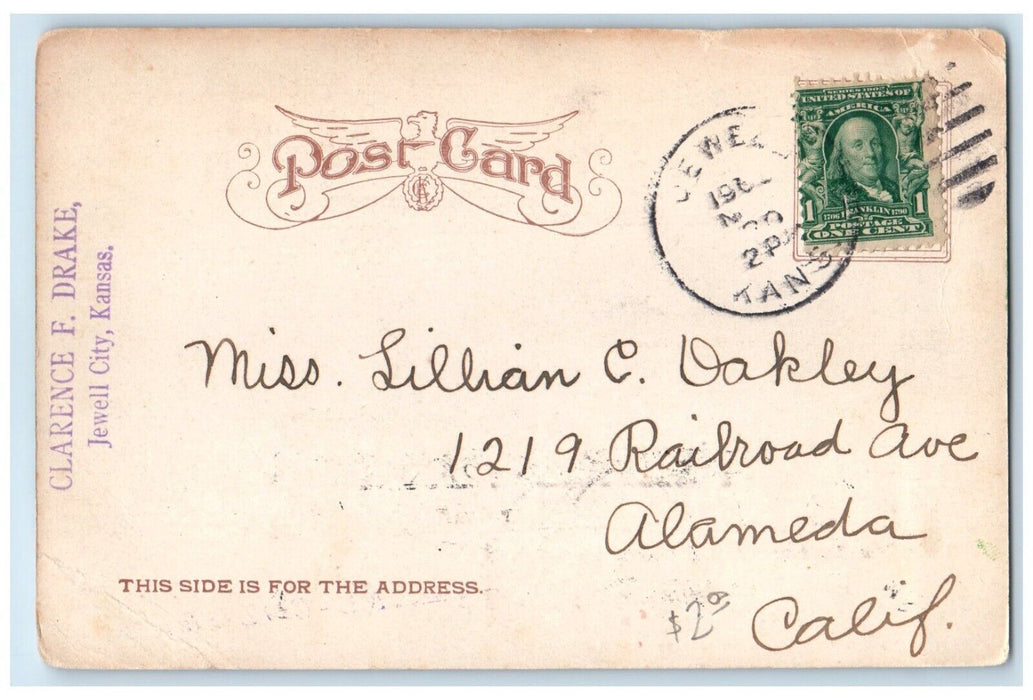 Post Card
CLARENCE F. DRAKE,
Jewell City, Kansas.
JEWELL
20
2 P
KANS
SERIES 1902
UNITED STATES OF
AMERICA
1 1
1706 FRANKLIN 1790
POSTAGE
ONE CENT
Miss. Lillian C. Oakley
1219 Railroad Ave
Alameda
Calif.
THIS SIDE IS FOR THE ADDRESS.
$2